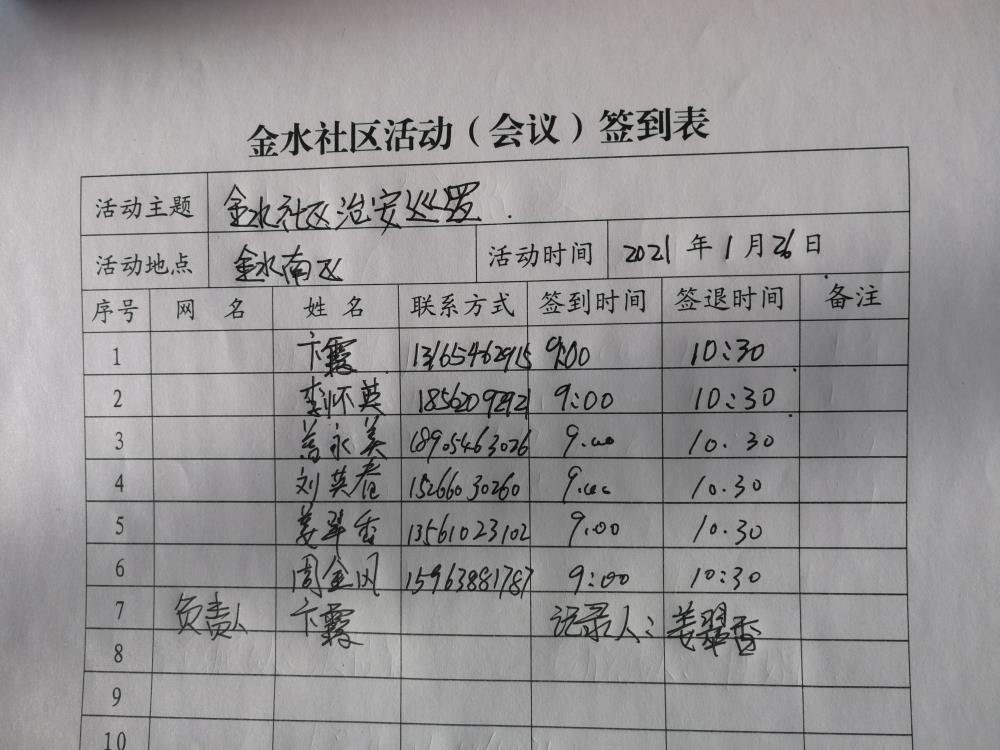 金水社区活动（会议）签到表
活动主题 金水社区治安巡逻.
活动地点 金水南区 活动时间 2021年1月26日
序号 网 名 姓 名 联系方式 签到时间 签退时间 备注
1 卞霞 13165462915 9:00 10:30
2 李怀英 1856209292 9:00 10:30
3 万永美 18905463026 9.00 10.30
4 刘英春 15266030260 9.00 10.30
5 姜翠香 13561023102 9.00 10.30
6 周金风 15963881787 9:00 10:30
7 负责人 卞霞 记录人：姜翠香
8
9
10